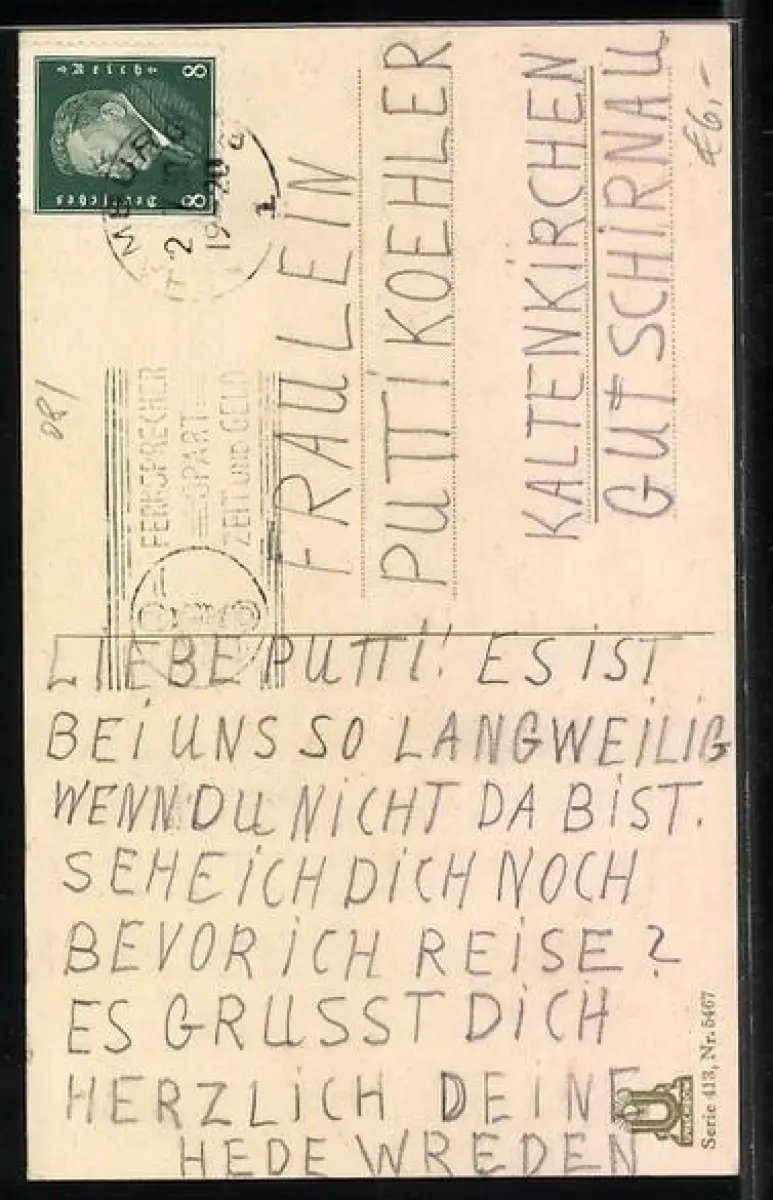 Deutsches Reich
8 8
MBURG
1
2
19-20
FERNSPRECHER
SPART
ZEIT UND GELD
DR/
€6,-
FRAULEIN
PUTTI KOEHLER
KALTENKIRCHEN
GUT SCHIRNAU
LIEBE PUTTI! ES IST
BEI UNS SO LANGWEILIG
WENN DU NICHT DA BIST.
SEHE ICH DICH NOCH
BEVOR ICH REISE?
ES GRUSST DICH
HERZLICH DEINE
HEDE WREDEN
Serie 413, Nr. 5467